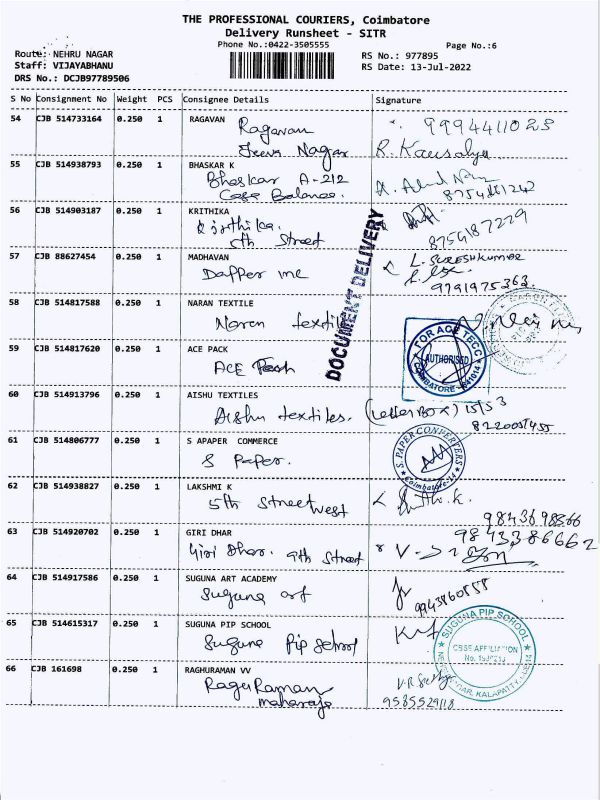 THE PROFESSIONAL COURIERS, Coimbatore
Delivery Runsheet - SITR
Phone No.:0422-3505555
Page No.:6
Route: NEHRU NAGAR
Staff: VIJAYABHANU
DRS No.: DCJB97789506
RS No.: 977895
RS Date: 13-Jul-2022
S No Consignment No Weight PCS Consignee Details Signature
54 CJB 514733164 0.250 1 RAGAVAN
Ragavan
Jeeva Nagar
9994411025
R. Kausalya
55 CJB 514938793 0.250 1 BHASKAR K
Bhaskar A-212
Casa Balance.
56 CJB 514903187 0.250 1 KRITHIKA
Kirthika.
5th Street
8754187229
57 CJB 88627454 0.250 1 MADHAVAN
Dapper inc
L. SURESHKUMAR
9791975363
DOCUMENT DELIVERY
58 CJB 514817588 0.250 1 NARAN TEXTILE
Naren textile
59 CJB 514817620 0.250 1 ACE PACK
ACE Tech
FOR ACE TECC
AUTHORISED
COIMBATORE - 641014
60 CJB 514913796 0.250 1 AISHU TEXTILES
Aishu textiles. (Letter Box) 15/53
61 CJB 514806777 0.250 1 S APAPER COMMERCE
S Paper.
S. PAPER CONVERTERS
Coimbatore-14
62 CJB 514938827 0.250 1 LAKSHMI K
5th Street west
63 CJB 514920702 0.250 1 GIRI DHAR
Giri Dhar. 9th Street
9843386662
64 CJB 514917586 0.250 1 SUGUNA ART ACADEMY
Suguna art
65 CJB 514615317 0.250 1 SUGUNA PIP SCHOOL
Suguna Pip School
SUGUNA PIP SCHOOL
CBSE AFFILIATION
KALAPATTY
66 CJB 161698 0.250 1 RAGHURAMAN VV
RaguRaman
maharaja
9585529118